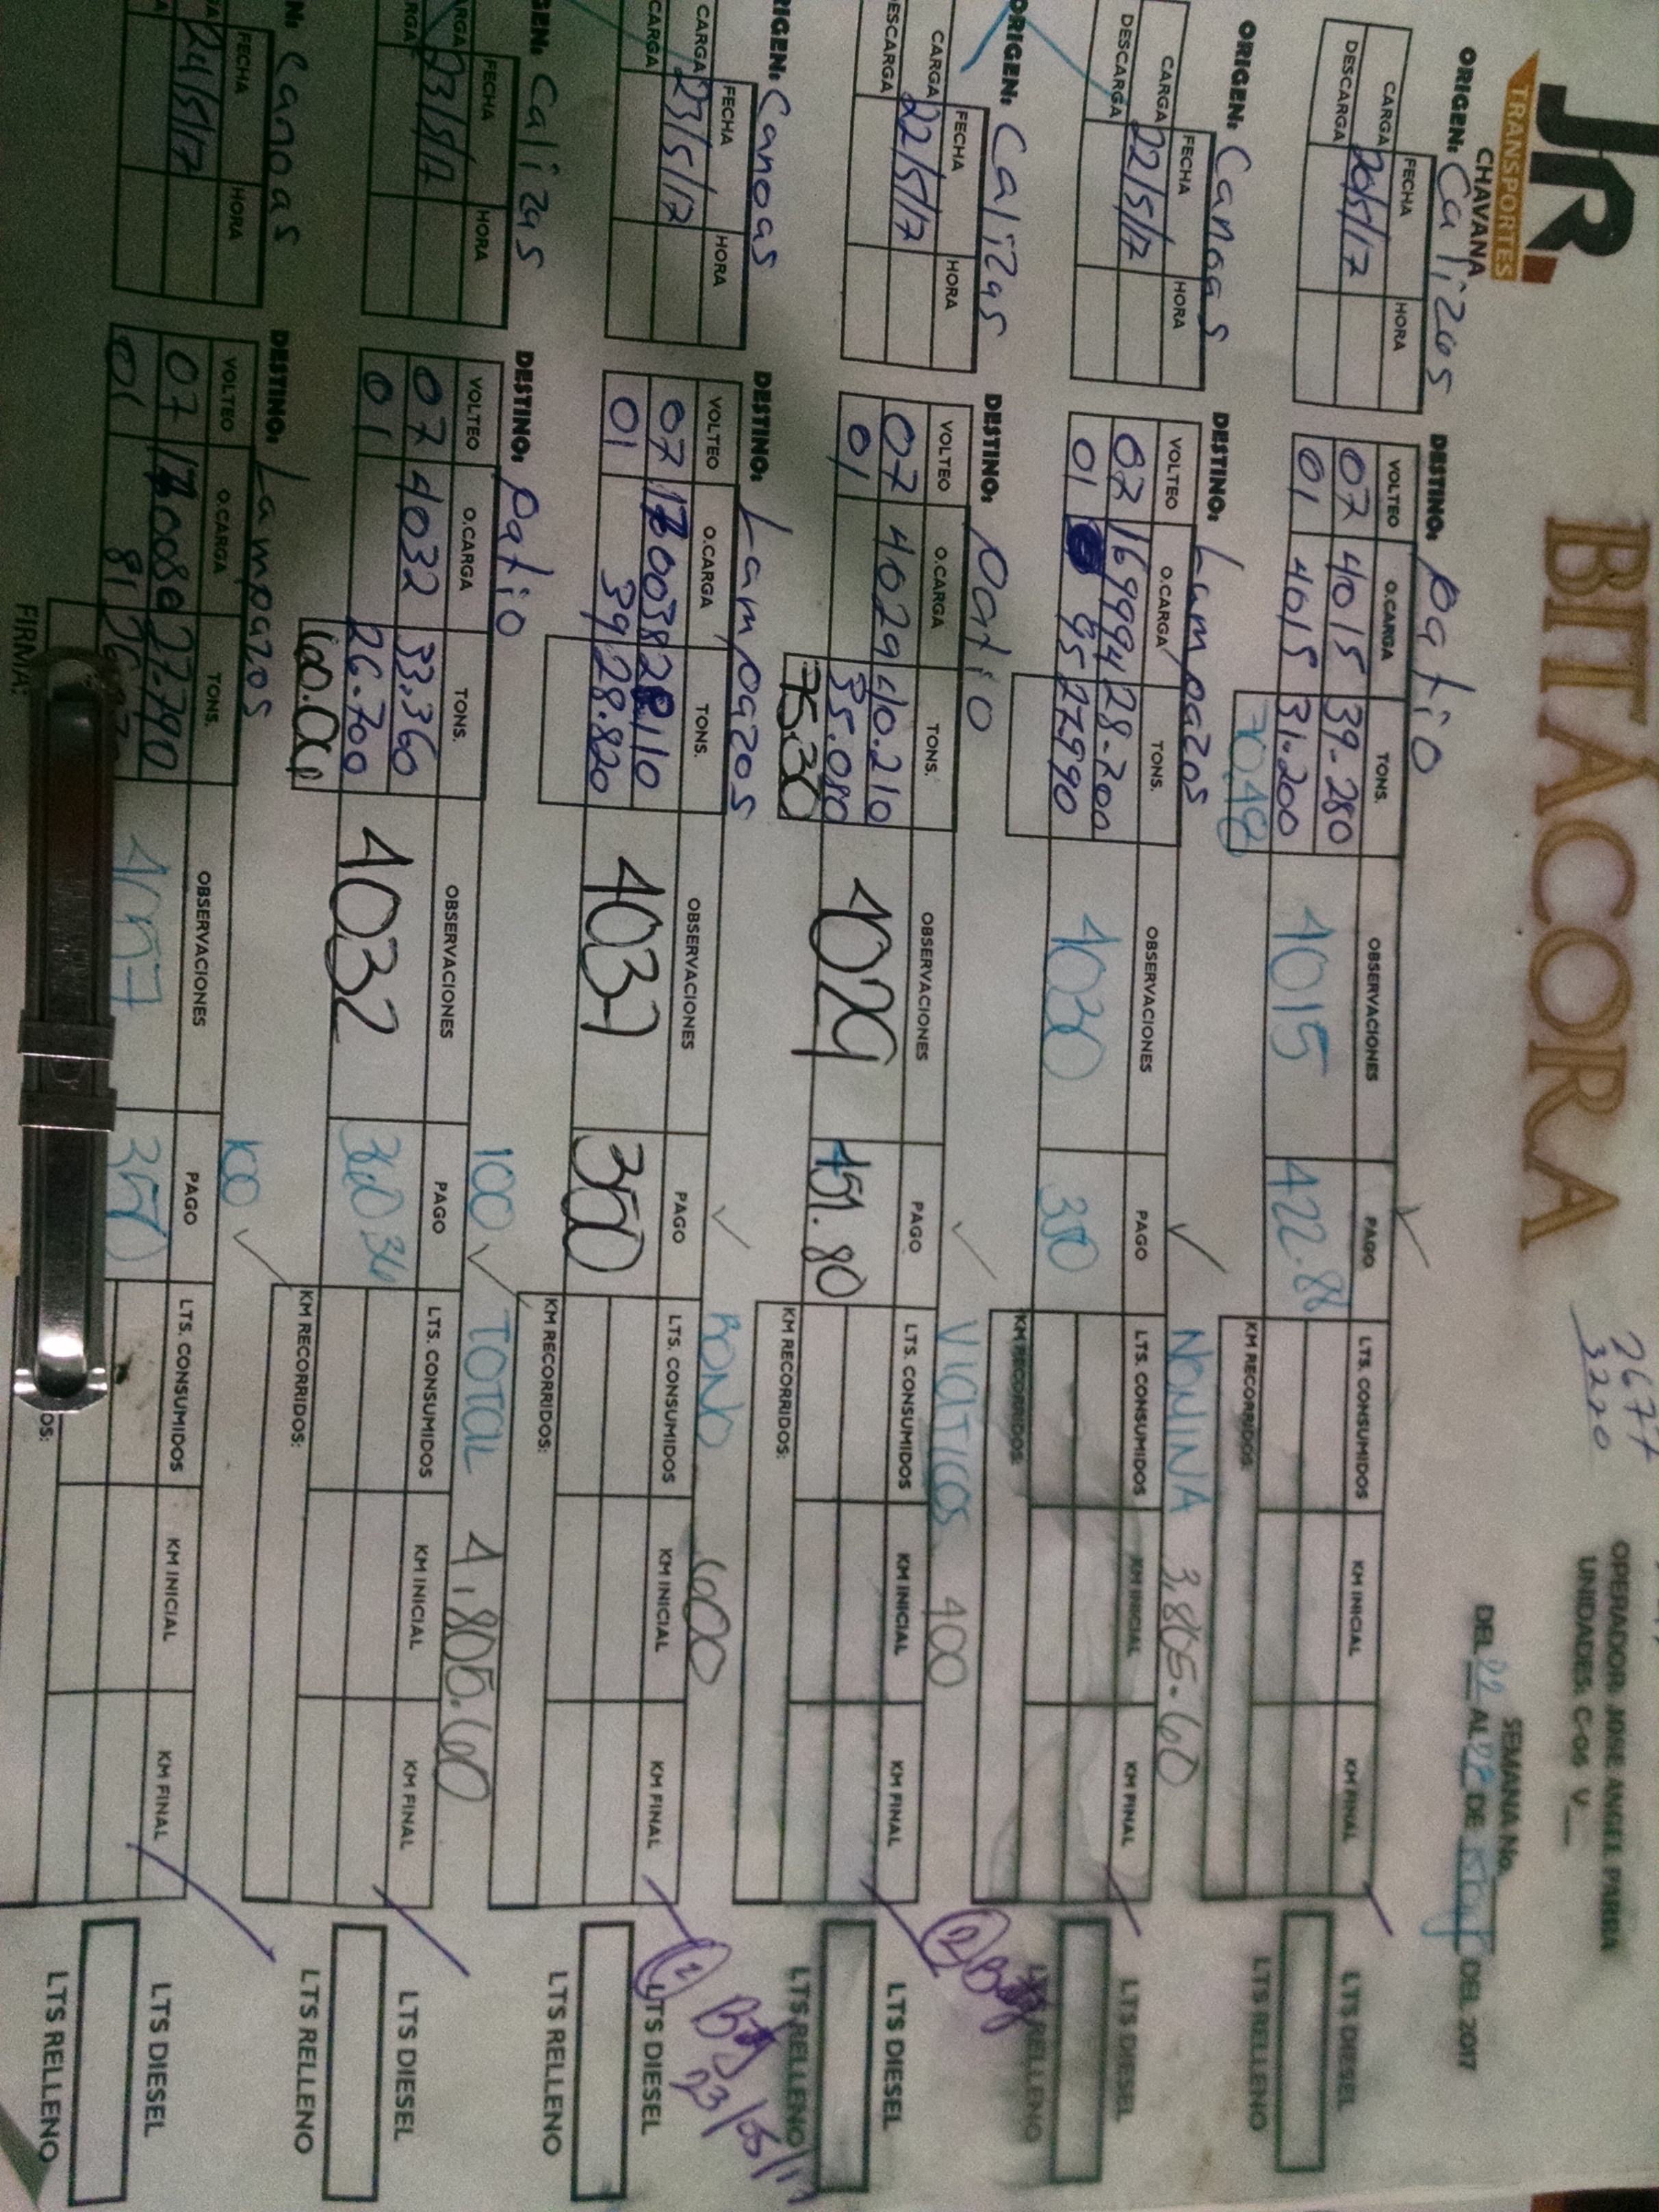 JR.
CHAVANA
TRANSPORTES
BITÁCORA
2677
3220
OPERADOR: JOSE ANGEL PARRA
UNIDADES: C-06 V__
SEMANA No.
DEL 22 AL 28 DE Mayo DEL 2017
ORIGEN: Calizas DESTINO: patio
FECHA HORA VOLTEO O.CARGA TONS. OBSERVACIONES PAGO LTS. CONSUMIDOS KM INICIAL KM FINAL LTS DIESEL
CARGA 20/5/17 07 4015 39-280 4015 422.88
DESCARGA 01 4015 31.200
70.48 KM RECORRIDOS: LTS RELLENO
NOMINA 3,805.60
ORIGEN: Canoas DESTINO: Lampazos
FECHA HORA VOLTEO O.CARGA TONS. OBSERVACIONES PAGO LTS. CONSUMIDOS KM INICIAL KM FINAL LTS DIESEL
CARGA 22/5/17 07 169994 28-200 4030 350
DESCARGA 01 95 27990
KM RECORRIDOS: LTS RELLENO
VIATICOS 400
ORIGEN: Calizas DESTINO: patio
FECHA HORA VOLTEO O.CARGA TONS. OBSERVACIONES PAGO LTS. CONSUMIDOS KM INICIAL KM FINAL LTS DIESEL
CARGA 22/5/17 07 4029 40.210 4029 451.80
DESCARGA 01 35.080
75.30 KM RECORRIDOS: LTS RELLENO
BONO 600
ORIGEN: Canoas DESTINO: Lampazos
FECHA HORA VOLTEO O.CARGA TONS. OBSERVACIONES PAGO LTS. CONSUMIDOS KM INICIAL KM FINAL LTS DIESEL
CARGA 23/5/17 07 170038 28110 4031 350
CARGA 01 39 28.820
KM RECORRIDOS: LTS RELLENO
23/05/1
100 TOTAL 4,805.60
GEN: Calizas DESTINO: patio
FECHA HORA VOLTEO O.CARGA TONS. OBSERVACIONES PAGO LTS. CONSUMIDOS KM INICIAL KM FINAL LTS DIESEL
23/5/17 07 4032 33.360 4032 360.36
01 26.700
60.06 KM RECORRIDOS: LTS RELLENO
100
N: Canoas DESTINO: Lampazos
FECHA HORA VOLTEO O.CARGA TONS. OBSERVACIONES PAGO LTS. CONSUMIDOS KM INICIAL KM FINAL LTS DIESEL
24/5/17 07 170080 27.790 350
01 81
FIRMA: OS: LTS RELLENO